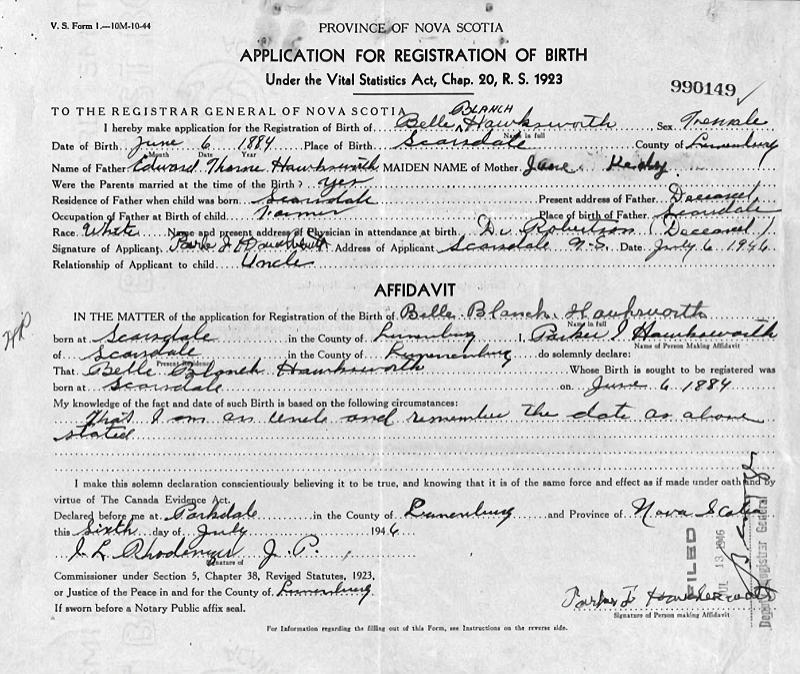 V. S. Form 1.—10M-10-44
PROVINCE OF NOVA SCOTIA
APPLICATION FOR REGISTRATION OF BIRTH
Under the Vital Statistics Act, Chap. 20, R. S. 1923
990149
TO THE REGISTRAR GENERAL OF NOVA SCOTIA
BLANCH
I hereby make application for the Registration of Birth of Belle Hawksworth Sex Female
Name in full
Date of Birth June 6 1884 Place of Birth Scarsdale County of Lunenburg
Month Date Year
Name of Father Edward Thorne Hawksworth MAIDEN NAME of Mother Jane
Were the Parents married at the time of the Birth? Yes
Residence of Father when child was born Scarsdale Present address of Father Deceased
Occupation of Father at Birth of child Farmer Place of birth of Father Scarsdale
Race White Name and present address of Physician in attendance at birth Dr Robertson (Deceased)
Signature of Applicant Parker J Hawksworth Address of Applicant Scarsdale N.S. Date July 6 1946
Relationship of Applicant to child Uncle
AFFIDAVIT
IN THE MATTER of the application for Registration of the Birth of Belle Blanch Hawksworth
Name in full
born at Scarsdale in the County of Lunenburg I, Parker J Hawksworth
Name of Person Making Affidavit
of Scarsdale in the County of Lunenburg do solemnly declare:
Present Residence
That Belle Blanch Hawksworth Whose Birth is sought to be registered was
born at Scarsdale on June 6 1884
My knowledge of the fact and date of such Birth is based on the following circumstances:
That I am an Uncle and remember the date as above
stated
I make this solemn declaration conscientiously believing it to be true, and knowing that it is of the same force and effect as if made under oath and by
virtue of The Canada Evidence Act.
Declared before me at Parkdale in the County of Lunenburg and Province of Nova Scotia
this Sixth day of July 1946
L Rhodenizer J. P.
Signature of
Commissioner under Section 5, Chapter 38, Revised Statutes, 1923,
or Justice of the Peace in and for the County of Lunenburg
If sworn before a Notary Public affix seal.
Parker J Hawksworth
Signature of Person making Affidavit
FILED
JUL 13 1946
Deputy Registrar General
For Information regarding the filling out of this Form, see Instructions on the reverse side.